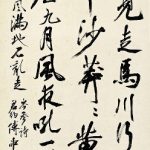 見走馬川行
沙莽莽黃
九月風夜吼一
風滿地石亂走
岑參詩